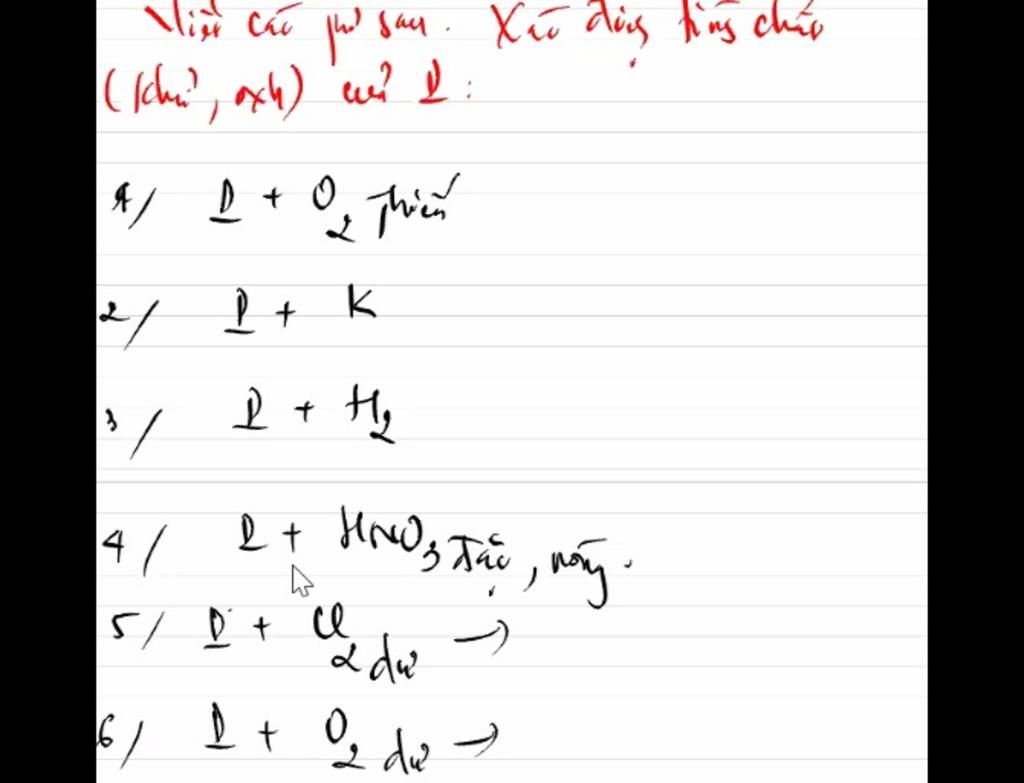 Viết các pư sau. Xác định tính chất
(khử, oxh) của P:
1/ P + O2 thiếu
2/ P + K
3/ P + H2
4/ P + HNO3 đặc, nóng.
5/ P + Cl2 dư →
6/ P + O2 dư →